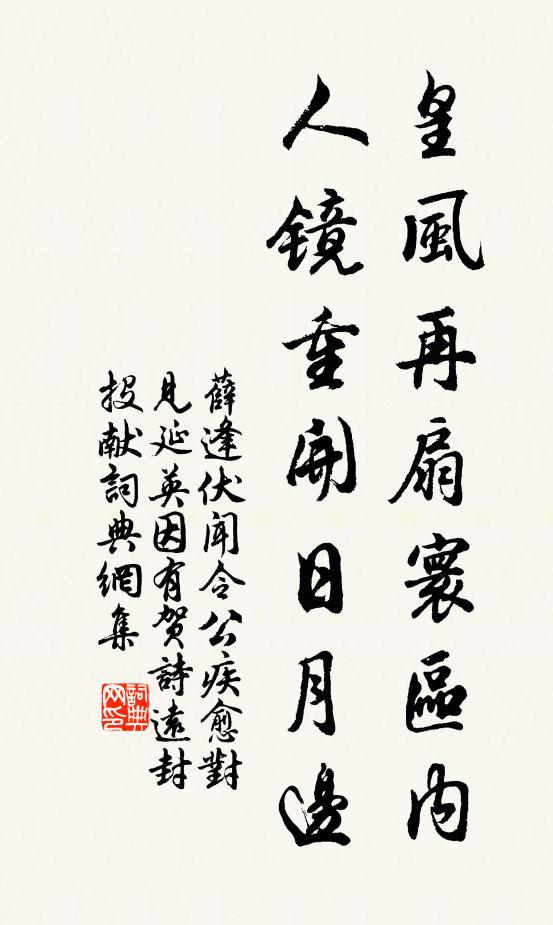 皇風再扇寰區内
人鏡重開日月邊
薛逢伏聞令公疾愈對
見延英因有贺詩遠封
投献詞典網集
詞典
网印